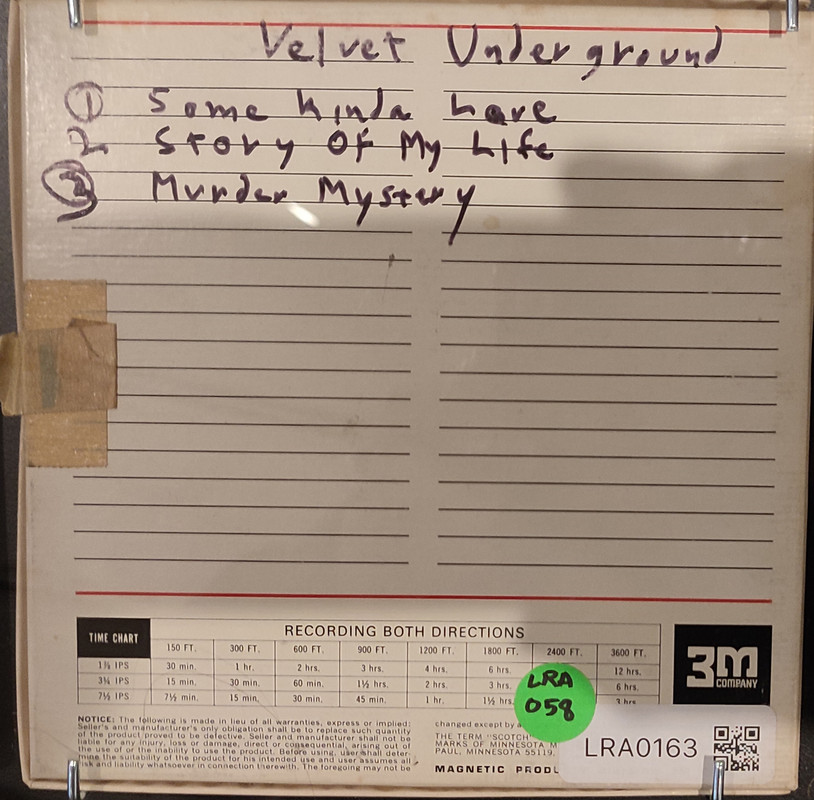 Velvet Underground
① Some Kinda Love
2 Story Of My Life
③ Murder Mystery
TIME CHART
RECORDING BOTH DIRECTIONS
150 FT. 300 FT. 600 FT. 900 FT. 1200 FT. 1800 FT. 2400 FT. 3600 FT.
1⅞ IPS 30 min. 1 hr. 2 hrs. 3 hrs. 4 hrs. 6 hrs. 12 hrs.
3¾ IPS 15 min. 30 min. 60 min. 1½ hrs. 2 hrs. 3 hrs. 6 hrs.
7½ IPS 7½ min. 15 min. 30 min. 45 min. 1 hr. 1½ hrs. 3 hrs.
3M
COMPANY
LRA
058
NOTICE: The following is made in lieu of all warranties, express or implied:
Seller's and manufacturer's only obligation shall be to replace such quantity
of the product proved to be defective. Seller and manufacturer shall not be
liable for any injury, loss or damage, direct or consequential, arising out of
the use of or the inability to use the product. Before using, user shall deter-
mine the suitability of the product for his intended use and user assumes all
risk and liability whatsoever in connection therewith. The foregoing may not be
changed except by
THE TERM "SCOTCH"
MARKS OF MINNESOTA M
PAUL, MINNESOTA 55119.
MAGNETIC PRODU
LRA0163